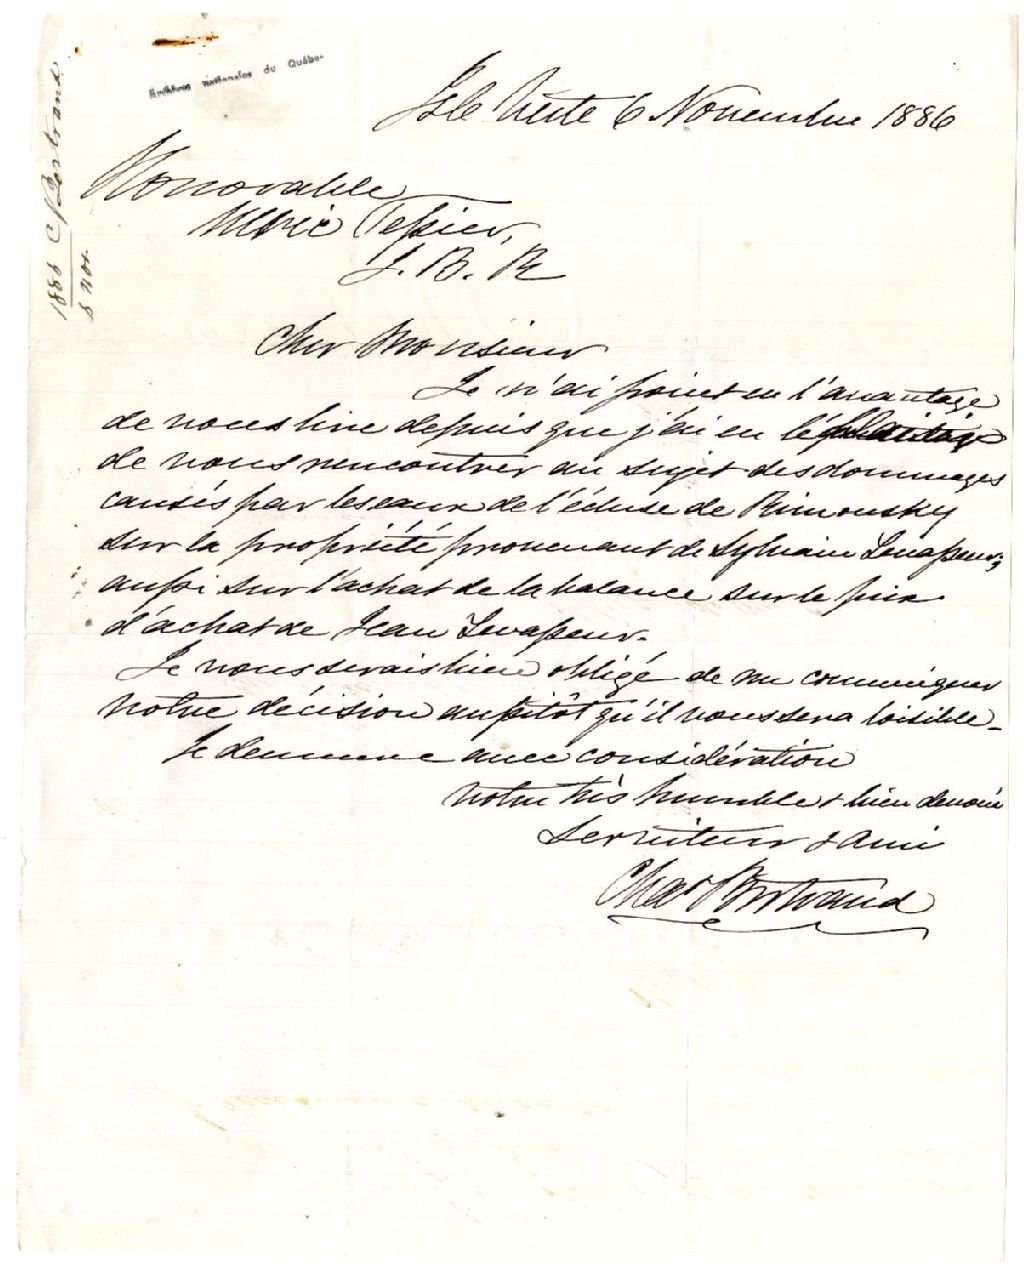 Archives nationales du Québec
1886 C Bertrand
8 nov.
Isle Verte 6 Novembre 1886
Honorable
Ulric Tessier,
J. B. R
Cher Monsieur
Je n'ai point eu l'avantage
de vous lire depuis que j'ai eu le
de vous rencontrer au sujet des dommages
causés par les eaux de l'écluse de Rimousky
sur la propriété provenant de Sylvain Levasseur,
aussi sur l'achat de la balance sur le prix
d'achat de Jean Levasseur.
Je vous serais bien obligé de me communiquer
votre décision aussitôt qu'il vous sera loisible.
Je demeure avec considération
votre très humble & bien dévoué
serviteur & ami
Chas Bertrand